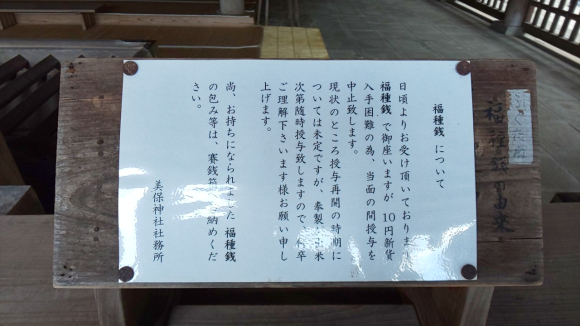 福種銭 について
日頃よりお受け頂いております
福種銭 で御座いますが 10円新貨
入手困難の為、当面の間授与を
中止致します。
現状のところ授与再開の時期に
ついては未定ですが、奉製 出来
次第随時授与致しますので 何卒
ご理解下さいます様お願い申し
上げます。
尚、お持ちになられました 福種銭
の包み等は、賽銭 納めくだ
さい。
美保神社社務所
福種銭